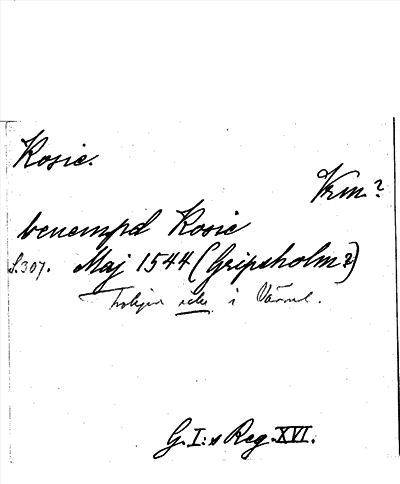 Rosie.
Vrm.?
benempd Rosie
S.307. Maj 1544 (Gripsholm?)
troligen icke i Värml.
G. I:s Reg. XVI.